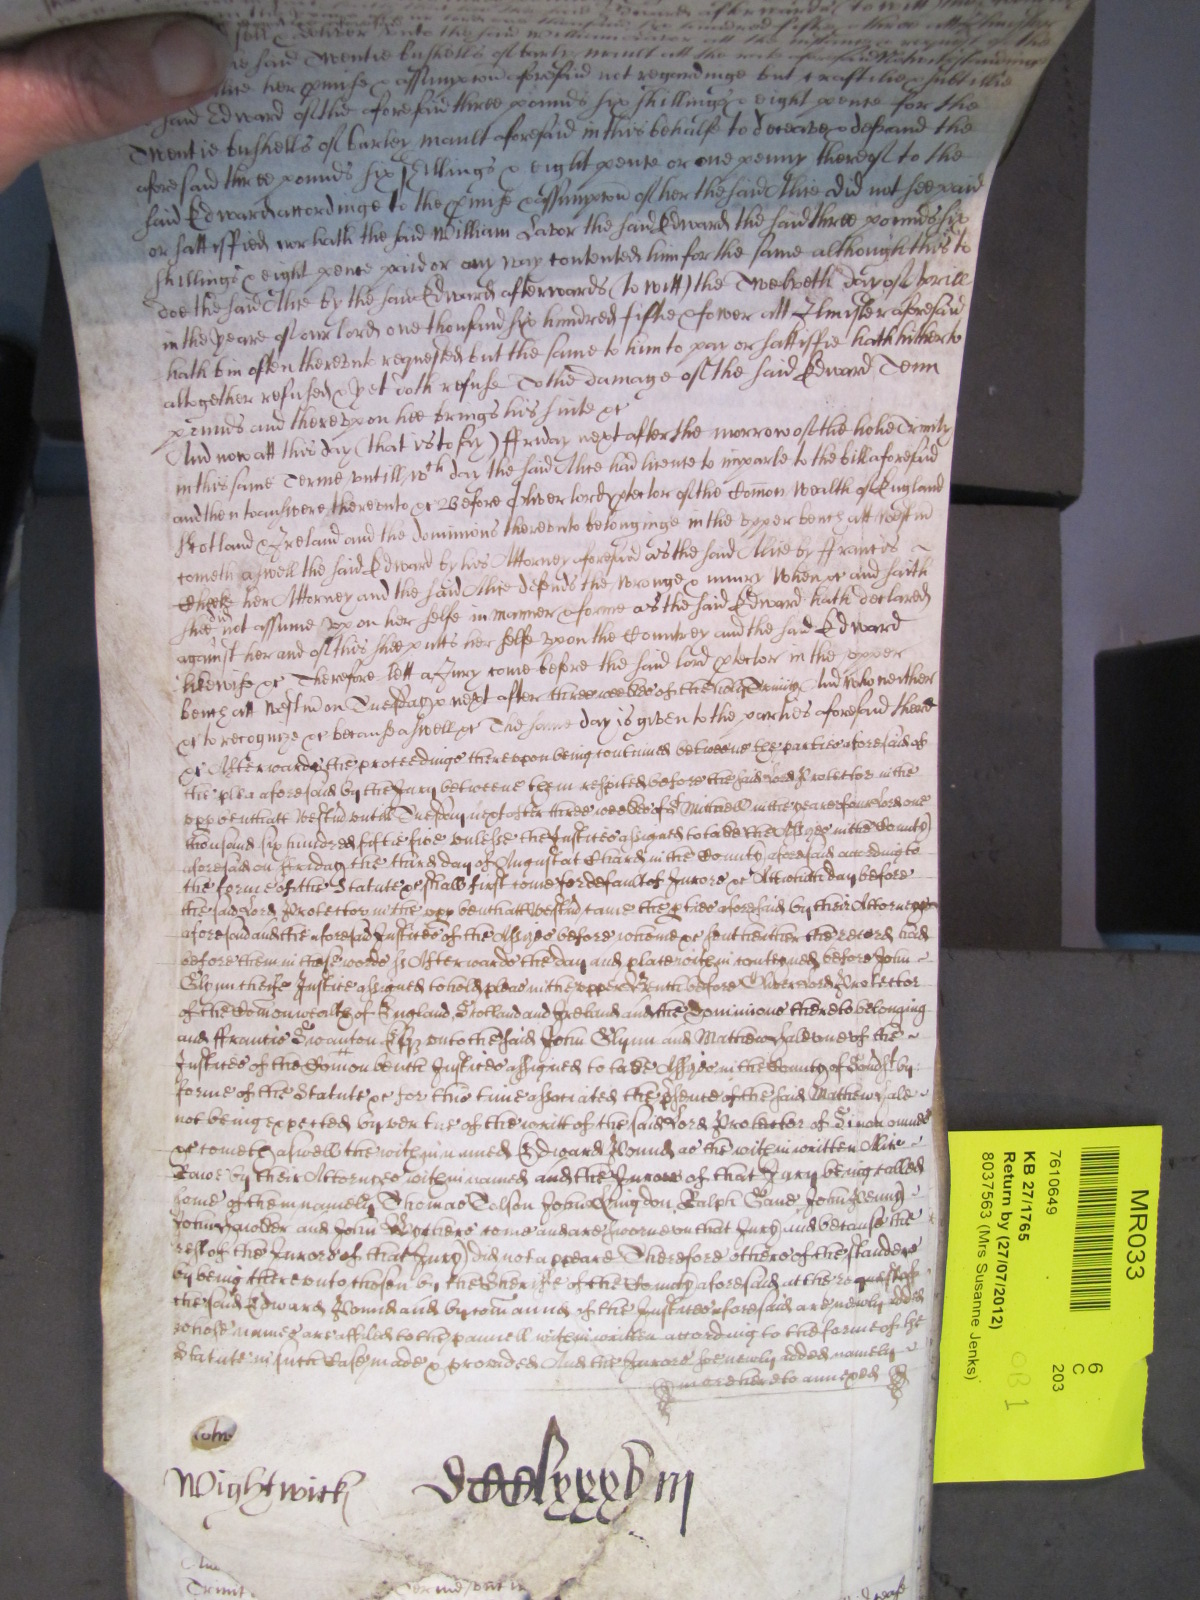 said Twentie bushells of barly mault att the
Alice her promise & assumpcon aforesaid not regardinge but craftilie & subtillie
said Edward of the aforesaid three pounds six shillings & eight pence for the
Twentie bushells of barley mault aforesaid in this behalfe to deceave & defraud the
aforesaid three pounds six shillings & eight pence or one penny thereof to the
said Edward accordinge to the pmise & assumpcon of her the said Alice did not see paid
or sattisfied nor hath the said William Lavor the said Edward the said three pounds six
shillings & eight pence paid or any way contented him for the same although this to
doe the said Alice by the said Edward afterwards (to witt) the Twelveth day of Aprill
in the yeare of our lord one thousand six hundred fiftie & fower att Ilmister aforesaid
hath bin often thereunto requested but the same to him to pay or sattisfie hath hitherto
altogether refused & yet doth refuse To the damage of the said Edward Tenn
pounds and thereupon hee brings his suite &c
And now att this day (that is to say) ffriday next after the morrow of the holie Trinity
in this same Terme untill wch day the said Alice had licence to imparle to the bill aforesaid
and then to answere thereunto &c Before Oliver lord ptector of the Comon wealth of England
Scotland & Ireland and the dominions thereunto belonginge in the upper bench att Westm
cometh aswell the said Edward by his Attorney aforesaid as the said Alice by ffrancis
her Attorney and the said Alice defends the wronge & iniury when &c and saith
shee did not assume upon her selfe in manner & forme as the said Edward hath declared
against her and of this shee putts her selfe upon the Countrey and the said Edward
likewise &c Therefore lett a Jury come before the said lord ptector in the upper
bench att Westm on Tuesday next after three weekes of the holy Trinity And who neither
&c to recognize &c because aswell &c The same day is given to the parties aforesaid there
&c Afterwards the proceedings thereupon being continued betweene the parties aforesaid of
the plea aforesaid by the Jury betweene them respited before the said Lord Protector in the
upp bench att Westm until Tuesday next after three weekes of St Michaell in the yeare of our Lord one
thousand six hundred fiftie five unlesse the Justices assigned to take the Assizes in the County
aforesaid on Friday the third day of August at Chard in the County aforesaid according to
the forme of the Statute &c shall first come for default of Jurors &c At which day before
the said Lord Protector in the upp bench att Westm came the pties aforesaid by their Attorneys
aforesaid and the aforesaid Justices of the Assizes before whome &c sent hither their record had
before them in these words ss Afterwards the day and place within contained before John
Glynn cheife Justice assigned to hold pleas in the upper Bench before Oliver Lord Protector
of the Comonwealth of England, Scotland and Ireland and the Dominions thereto belonging
and ffrancis Swanton Esqr unto the said John Glynn and Mathew Hale one of the
Justices of the Comon bench Justices assigned to take Assizes in the County of Somset by
forme of the Statute &c for this time associated the psence of the said Mathew Hale
not being expected by vertue of the writt of the said Lord Protector of Si non omnes
&c cometh aswell the within named Edward Pound as the within written Alice
by their Attorneys within named and the Jurors of that Jury being called
some of them namely Thomas Tolson John Ralph John Penny
John and John come and are sworne on that Jury and because the
rest of the Jurors of that Jury did not appeare Therefore others of the standers
by being thereunto chosen by the Sheriffe of the County aforesaid at the request of
the said Edward Pound and by comaund of the Justices aforesaid are newly added
whose names are affiled to the pannell within written according to the forme of the
Statute in such Case made & provided And the Jurors soe newly added namely
more hereto annexed
Wightwick
MR033
6
C
203
7610649
KB 27/1765
Return by (27/07/2012)
8037563 (Mrs Susanne Jenks)